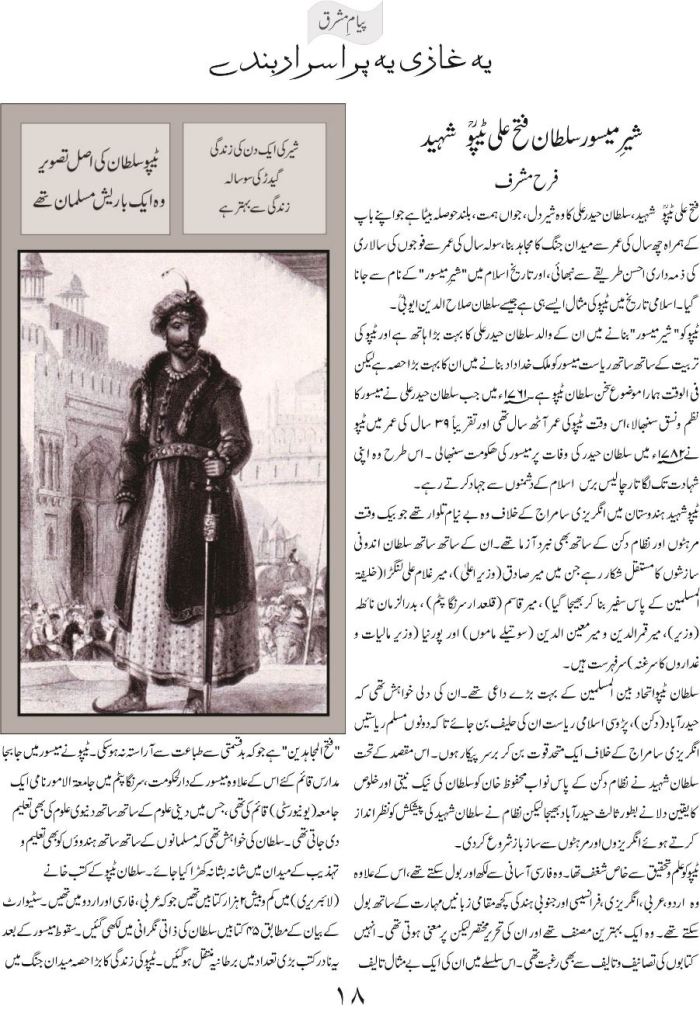 پیامِ مشرق
یہ غازی یہ پراسرار بندے
شیرِ میسور سلطان فتح علی ٹیپوؒ شہید
فرح مشرف
فتح علی ٹیپوؒ شہید، سلطان حیدر علی کا وہ شیر دل، جواں ہمت، بلند حوصلہ بیٹا ہے جو اپنے باپ
کے ہمراہ چھ سال کی عمر سے میدان جنگ کا مجاہد بنا، سولہ سال کی عمر سے فوجوں کی سالاری
کی ذمہ داری احسن طریقے سے نبھائی، اور تاریخ اسلام میں "شیرِ میسور" کے نام سے جانا
گیا۔ اسلامی تاریخ میں ٹیپو کی مثال ایسے ہی ہے جیسے سلطان صلاح الدین ایوبیؒ۔
ٹیپو کو "شیر میسور" بنانے میں ان کے والد سلطان حیدر علی کا بہت بڑا ہاتھ ہے اور ٹیپو کی
تربیت کے ساتھ ساتھ ریاست میسور کو ملک خداداد بنانے میں ان کا بہت بڑا حصہ ہے لیکن
فی الوقت ہمارا موضوع سخن سلطان ٹیپو ہے۔ ۱۷۶۱ء میں جب سلطان حیدر علی نے میسور کا
نظم و نسق سنبھالا، اس وقت ٹیپو کی عمر آٹھ سال تھی اور تقریباً ۳۹ سال کی عمر میں ٹیپو
نے ۱۷۸۲ء میں سلطان حیدر کی وفات پر میسور کی حکومت سنبھالی۔ اس طرح وہ اپنی
شہادت تک لگاتار چالیس برس اسلام کے دشمنوں سے جہاد کرتے رہے۔
ٹیپو شہید ہندوستان میں انگریزی سامراج کے خلاف وہ بے نیام تلوار تھے جو بیک وقت
مرہٹوں اور نظام دکن کے ساتھ بھی نبرد آزما تھے۔ ان کے ساتھ ساتھ سلطان اندونی
سازشوں کا مستقل شکار رہے جن میں میر صادق (وزیر اعلیٰ)، میر غلام علی لنگڑا (خلیفۃ
المسلمین کے پاس سفیر بنا کر بھیجا گیا)، میر قاسم (قلعدار سرنگا پٹم)، بدر الزمان نائطہ
(وزیر)، میر قمر الدین و میر معین الدین (سوتیلے ماموں) اور پورنیا (وزیر مالیات و
غداروں کا سرغنہ) سرفہرست ہیں۔
سلطان ٹیپو اتحاد بین المسلمین کے بہت بڑے داعی تھے۔ ان کی دلی خواہش تھی کہ
حیدر آباد (دکن)، پڑوسی اسلامی ریاست ان کی حلیف بن جائے تاکہ دونوں مسلم ریاستیں
انگریزی سامراج کے خلاف ایک متحد قوت بن کر برسر پیکار ہوں۔ اس مقصد کے تحت
سلطان شہید نے نظام دکن کے پاس نواب محفوظ خان کو سلطان کی نیک نیتی اور خلوص
کا یقین دلانے بطور ثالث حیدر آباد بھیجا لیکن نظام نے سلطان شہید کی پیشکش کو نظر انداز
کرتے ہوئے انگریزوں اور مرہٹوں سے ساز باز شروع کر دی۔
ٹیپو کو علم و تحقیق سے خاص شغف تھا۔ وہ فارسی آسانی سے لکھ اور بول سکتے تھے، اس کے علاوہ
وہ اردو، عربی، انگریزی، فرانسیسی اور جنوبی ہند کی کچھ مقامی زبانیں مہارت کے ساتھ بول
سکتے تھے۔ وہ ایک بہترین مصنف تھے اور ان کی تحریر مختصر لیکن پر معنی ہوتی تھی۔ انہیں
کتابوں کی تصانیف و تالیف سے بھی رغبت تھی۔ اس سلسلے میں ان کی ایک بے مثال تالیف
شیر کی ایک دن کی زندگی
گیدڑ کی سو سالہ
زندگی سے بہتر ہے
ٹیپو سلطان کی اصل تصویر
وہ ایک باریش مسلمان تھے
"فتح المجاہدین" ہے جو کہ بدقسمتی سے طباعت سے آراستہ نہ ہو سکی۔ ٹیپو نے میسور میں جابجا
مدارس قائم کئے اس کے علاوہ میسور کے دارالحکومت، سرنگا پٹم میں جامعۃ الامور نامی ایک
جامعہ (یونیورسٹی) قائم کی تھی، جس میں دینی علوم کے ساتھ ساتھ دنیوی علوم کی بھی تعلیم
دی جاتی تھی۔ سلطان کی خواہش تھی کہ مسلمانوں کے ساتھ ساتھ ہندوؤں کو بھی تعلیم و
تہذیب کے میدان میں شانہ بشانہ کھڑا کیا جائے۔ سلطان ٹیپو کے کتب خانے
(لائبریری) میں کم و بیش ۲ ہزار کتابیں تھیں جو کہ عربی، فارسی اور اردو میں تھیں۔ سٹیوارٹ
کے بیان کے مطابق ۴۵ کتابیں سلطان کی ذاتی نگرانی میں لکھی گئیں۔ سقوط میسور کے بعد
یہ نادر کتب بڑی تعداد میں برطانیہ منتقل ہو گئیں۔ ٹیپو کی زندگی کا بڑا حصہ میدان جنگ میں
۱۸